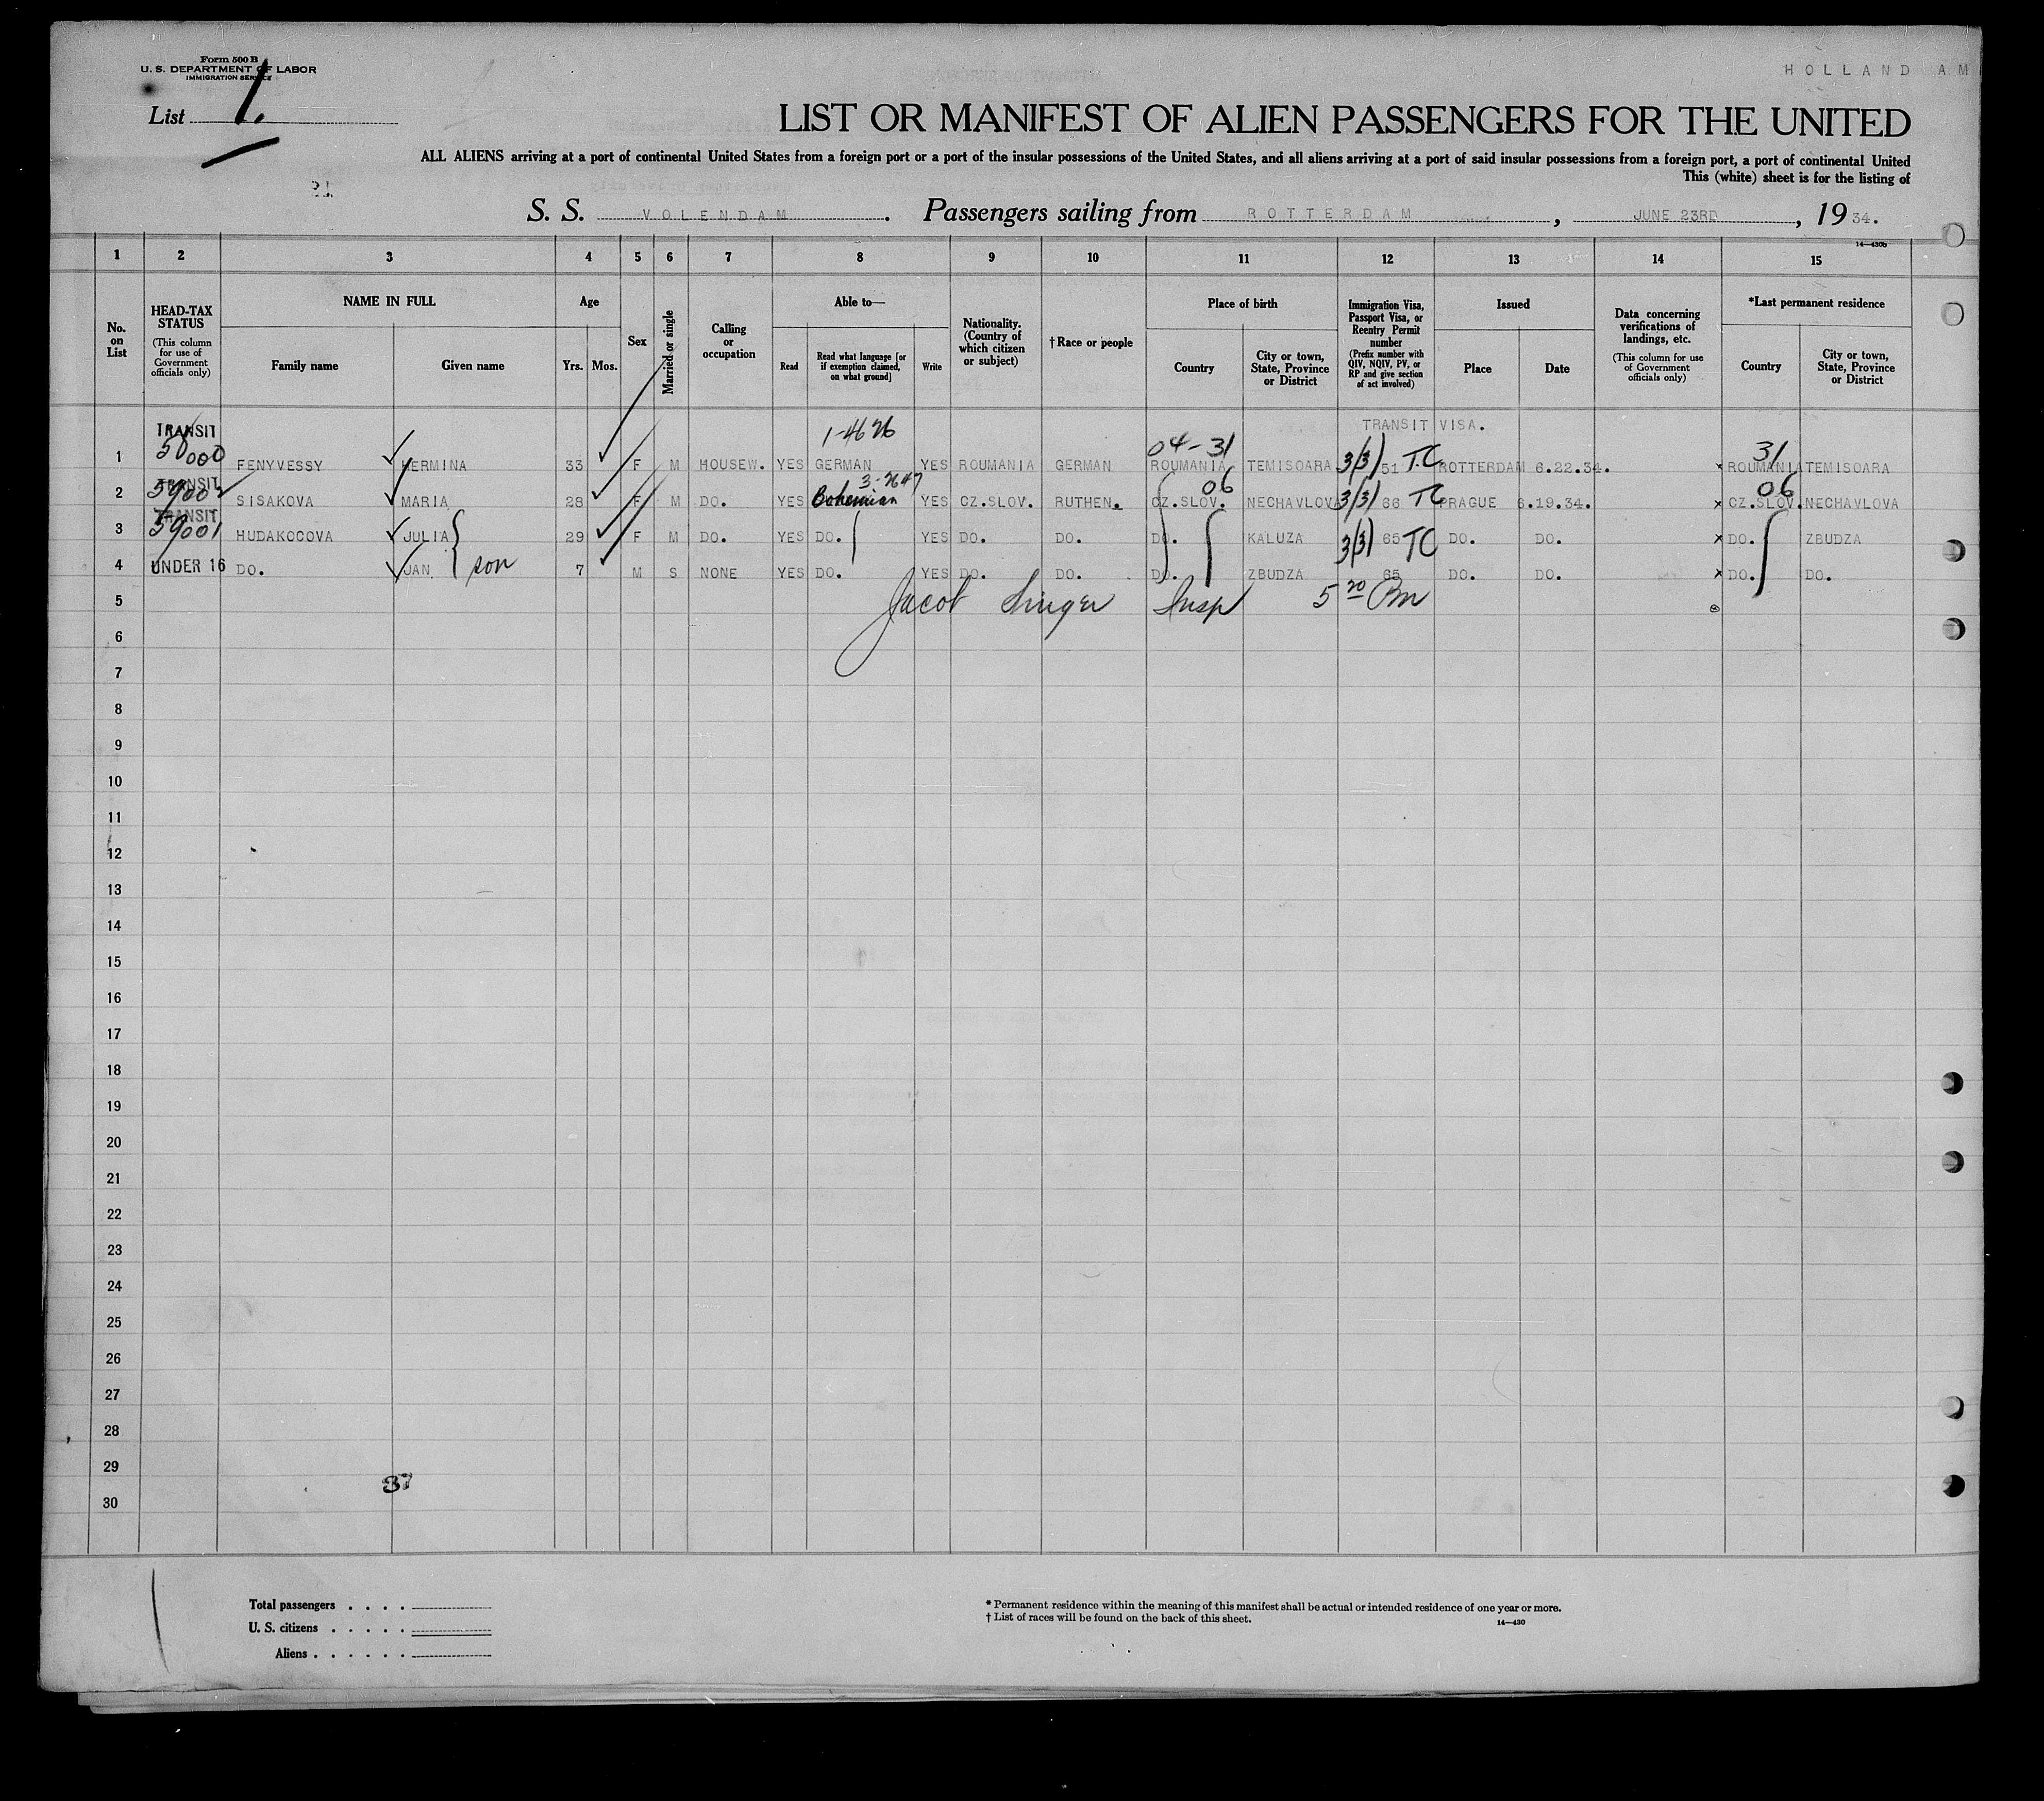 Form 500 B
U. S. DEPARTMENT OF LABOR
IMMIGRATION SERVICE
HOLLAND AM
List 1.
LIST OR MANIFEST OF ALIEN PASSENGERS FOR THE UNITED
ALL ALIENS arriving at a port of continental United States from a foreign port or a port of the insular possessions of the United States, and all aliens arriving at a port of said insular possessions from a foreign port, a port of continental United
This (white) sheet is for the listing of
S. S. VOLENDAM. Passengers sailing from ROTTERDAM, JUNE 23RD, 1934.
14—430b
1 2 3 4 5 6 7 8 9 10 11 12 13 14 15
No. on List
HEAD-TAX STATUS (This column for use of Government officials only)
NAME IN FULL
Family name Given name
Age
Yrs. Mos.
Sex
Married or single
Calling or occupation
Able to—
Read Read what language [or if exemption claimed, on what ground] Write
Nationality. (Country of which citizen or subject)
†Race or people
Place of birth
Country City or town, State, Province or District
Immigration Visa, Passport Visa, or Reentry Permit number (Prefix number with QIV, NQIV, PV, or RP and give section of act involved)
Issued
Place Date
Data concerning verifications of landings, etc. (This column for use of Government officials only)
*Last permanent residence
Country City or town, State, Province or District
TRANSIT 1-4626 TRANSIT VISA.
04-31 31
1 FENYVESSY HERMINA 33 F M HOUSEW. YES GERMAN YES ROUMANIA GERMAN ROUMANIA TEMISOARA 3/3/ 51 TC ROTTERDAM 6.22.34. x ROUMANIA TEMISOARA
TRANSIT 3-2647 06 06
2 59002 SISAKOVA MARIA 28 F M DO. YES Bohemian YES CZ.SLOV. RUTHEN. CZ.SLOV. NECHAVLOVA 3/3/ 66 TC PRAGUE 6.19.34. x CZ.SLOV. NECHAVLOVA
TRANSIT
3 59001 HUDAKOCOVA JULIA 29 F M DO. YES DO. YES DO. DO. DO. KALUZA 3/3/ 65 TC DO. DO. x DO. ZBUDZA
4 UNDER 16 DO. JAN son 7 M S NONE YES DO. YES DO. DO. DO. ZBUDZA 65 DO. DO. x DO. DO.
5 Jacob Singer Insp 5 20 Pm
6
7
8
9
10
11
12
13
14
15
16
17
18
19
20
21
22
23
24
25
26
27
28
29
37
30
Total passengers . . . .
U. S. citizens . . . . .
Aliens . . . . . .
* Permanent residence within the meaning of this manifest shall be actual or intended residence of one year or more.
† List of races will be found on the back of this sheet.
14—430